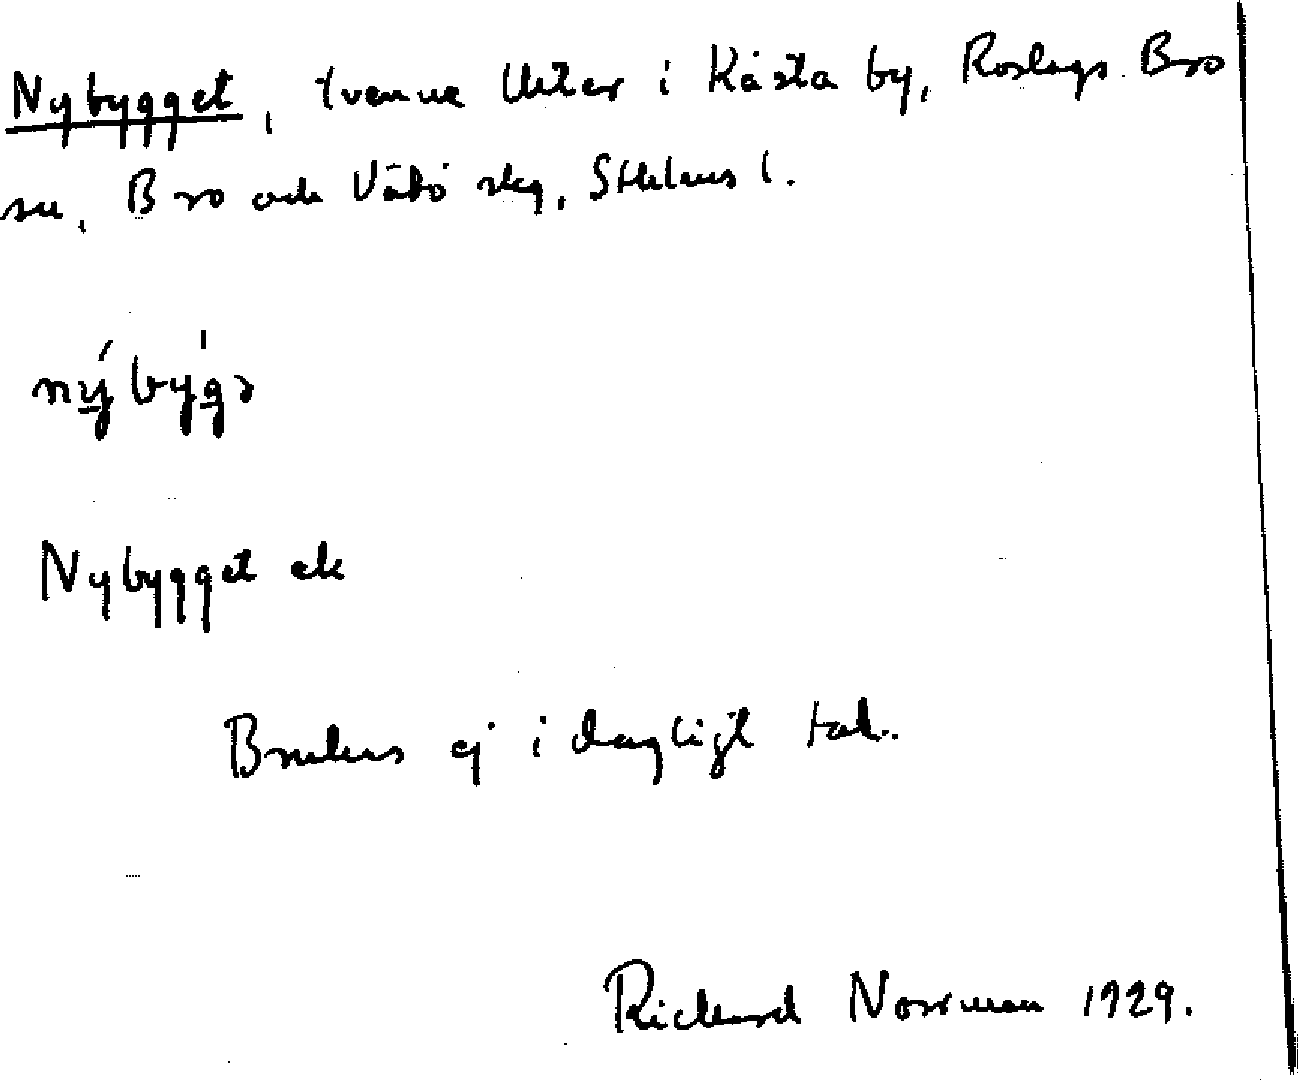 Nybygget, tvenne lhter i Kåsta by, Roslags-Bro
sn, Bro och Vätö skg, Sthlms l.
nýbýgə
Nybygget ek
Brukas ej i dagligt tal.
Rickard Norrman 1929.